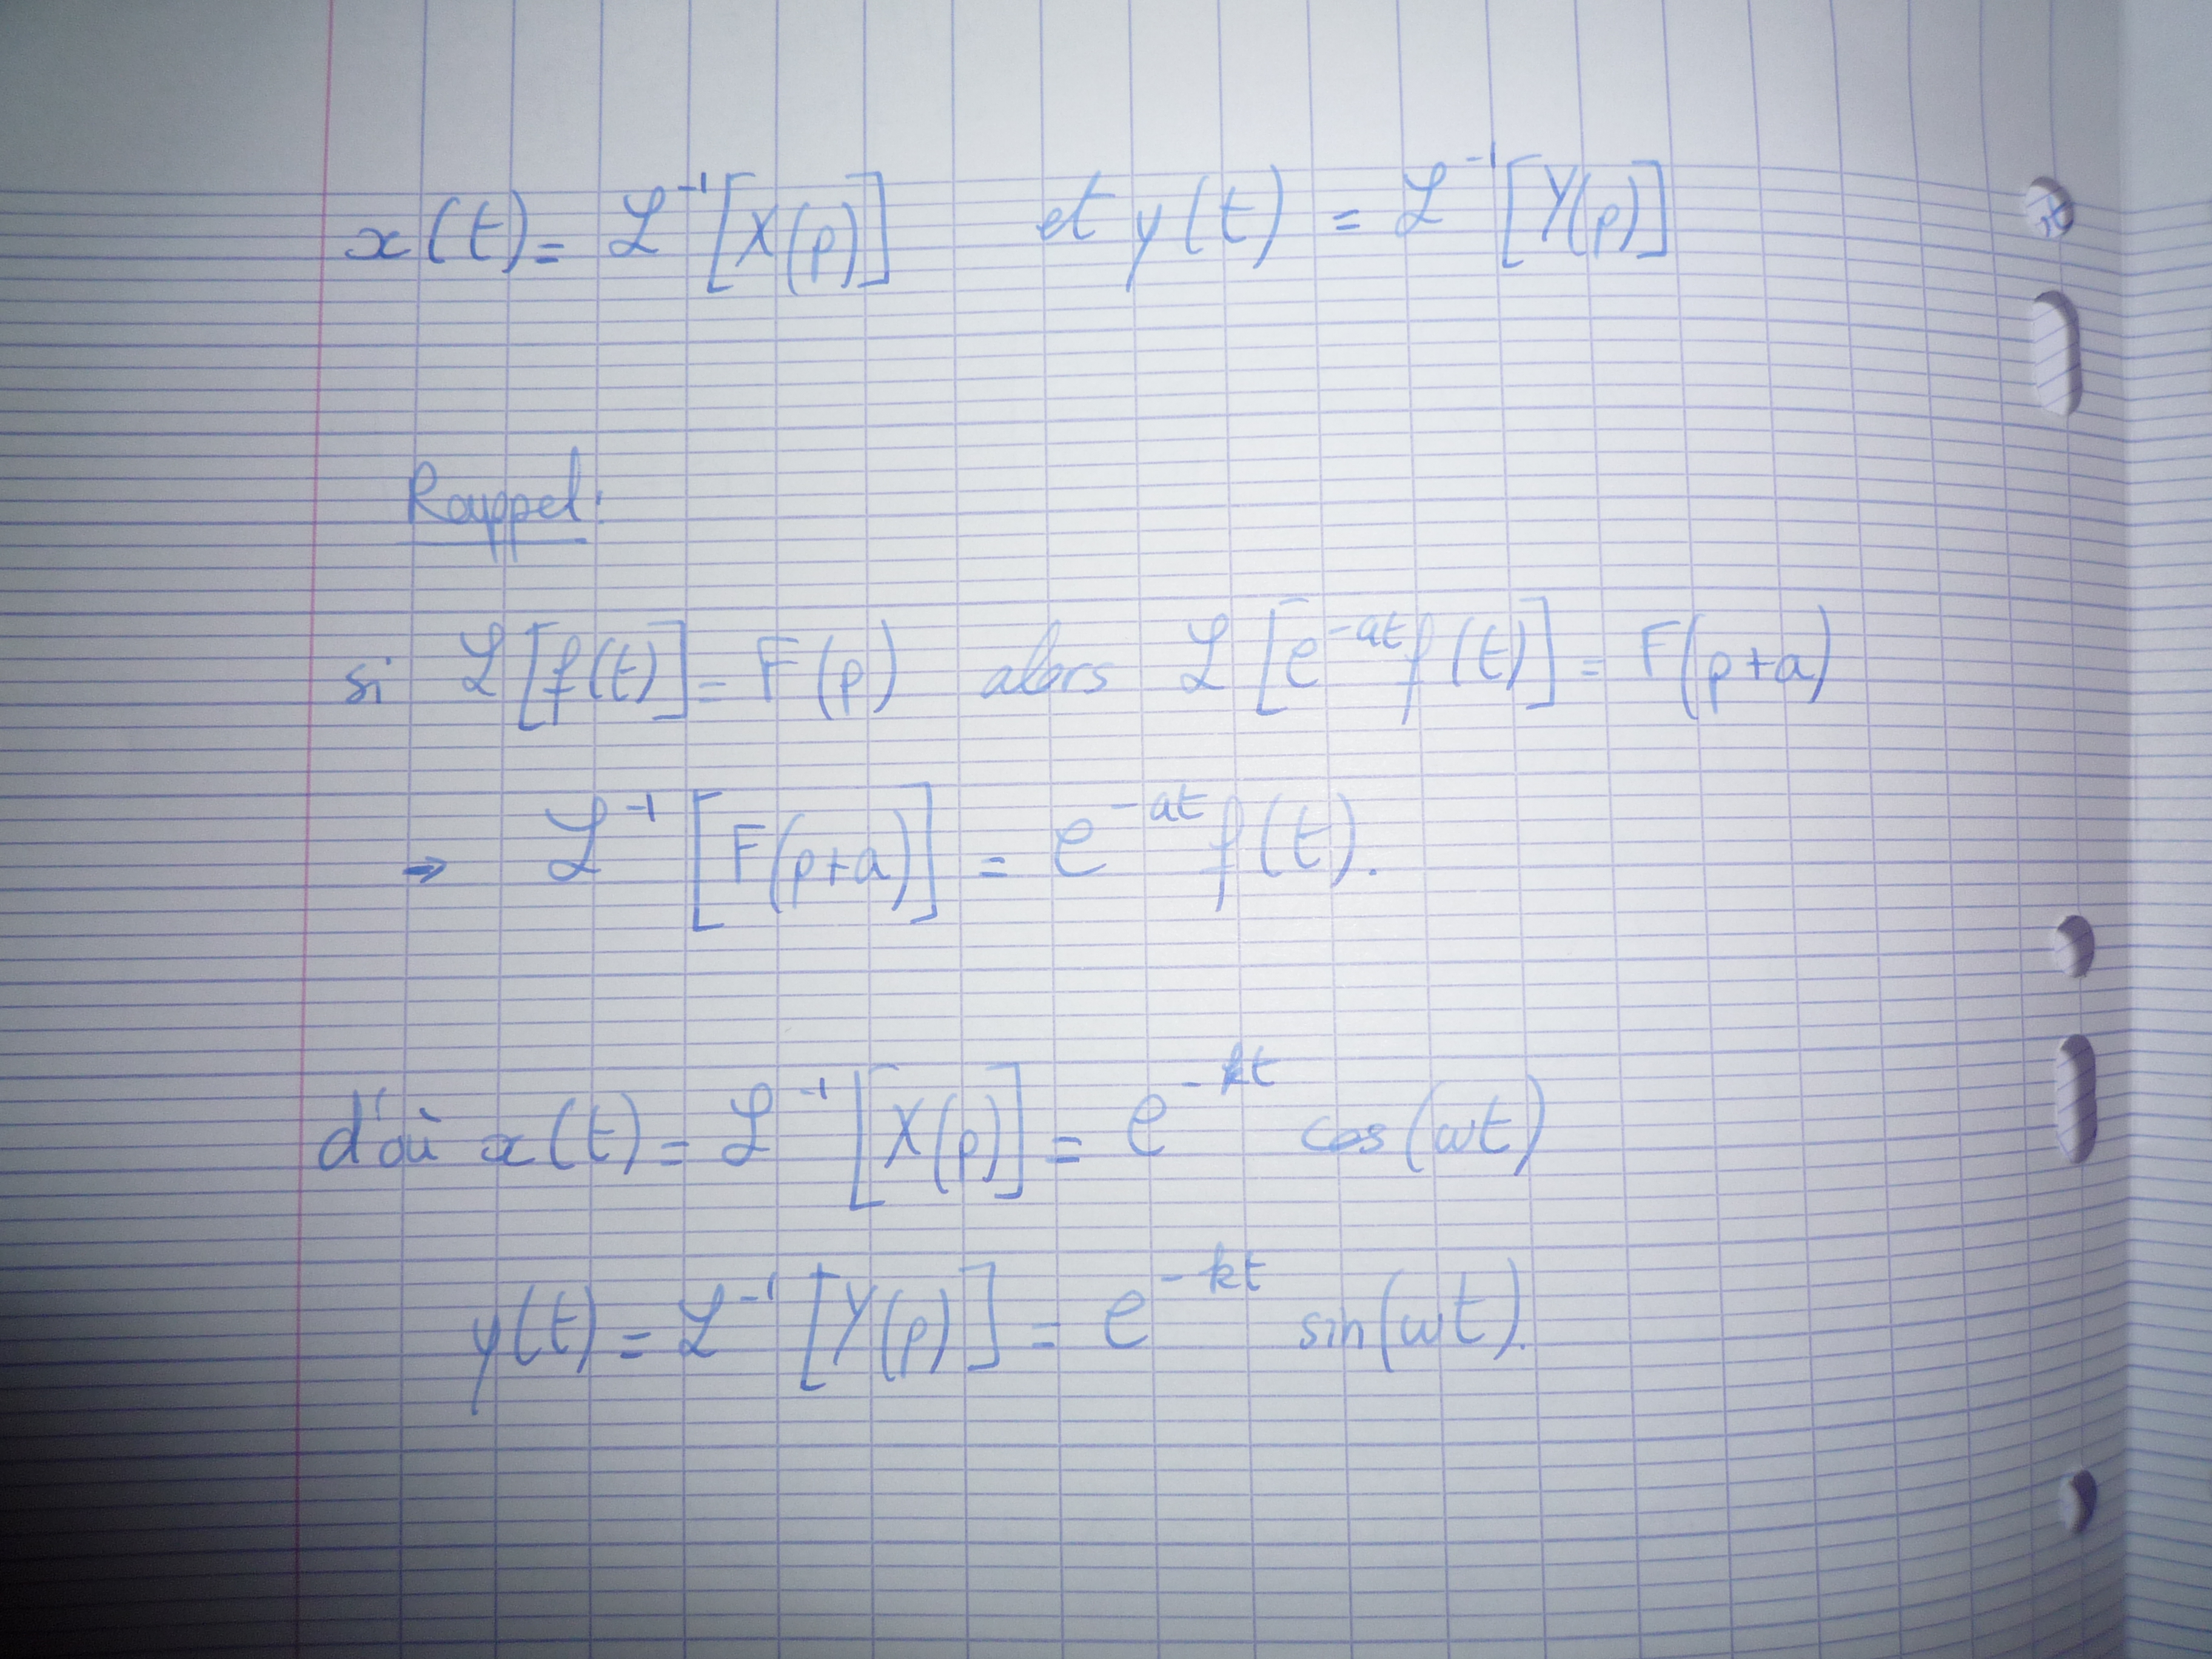 x(t) = ℒ⁻¹[X(p)] et y(t) = ℒ⁻¹[Y(p)]
Rappel:
si ℒ[f(t)] = F(p) alors ℒ[e^{-at} f(t)] = F(p+a)
→ ℒ⁻¹[F(p+a)] = e^{-at} f(t).
d'où x(t) = ℒ⁻¹[X(p)] = e^{-kt} cos(ωt)
y(t) = ℒ⁻¹[Y(p)] = e^{-kt} sin(ωt).